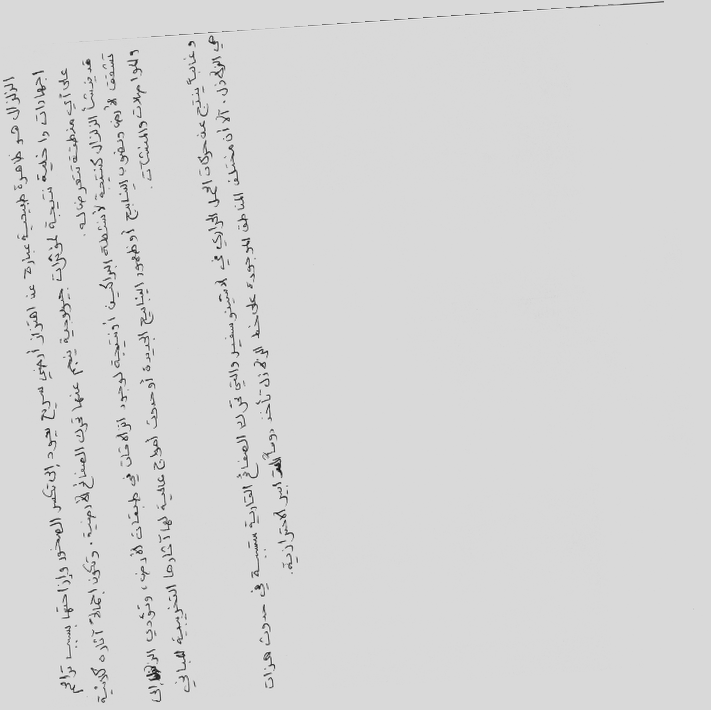 الزلزال هو ظاهرة طبيعية عبارة عن اهتزاز أرضي سريع يعود إلى تكسر الصخور وإزاحتها بسبب تراكم
اجهادات داخلية نتيجة لمؤثرات جيولوجية ينجم عنها تحرك الصفائح الأرضية. وتكون إجمالاً آثاره كارثية
على أي منطقة تتعرض له.
قد ينشأ الزلزال كنتيجة لأنشطة البراكين أو نتيجة لوجود انزلاقات في طبقات الأرض، وتؤدي الزلازل إلى
تشقق الأرض ونضوب الينابيع أو ظهور الينابيع الجديدة أو حدوث أمواج عالية لها آثارها التخريبية للمباني
والمواصلات والمنشآت.
وغالباً ينتج عن حركات الحمل الحراري في والتي تحرك الصفائح القارية متسببة في حدوث هزات
هي الزلازل. الآن مختلف المناطق الموجودة على خط الزلازل تأخذ دوماً التدابير الاحترازية.